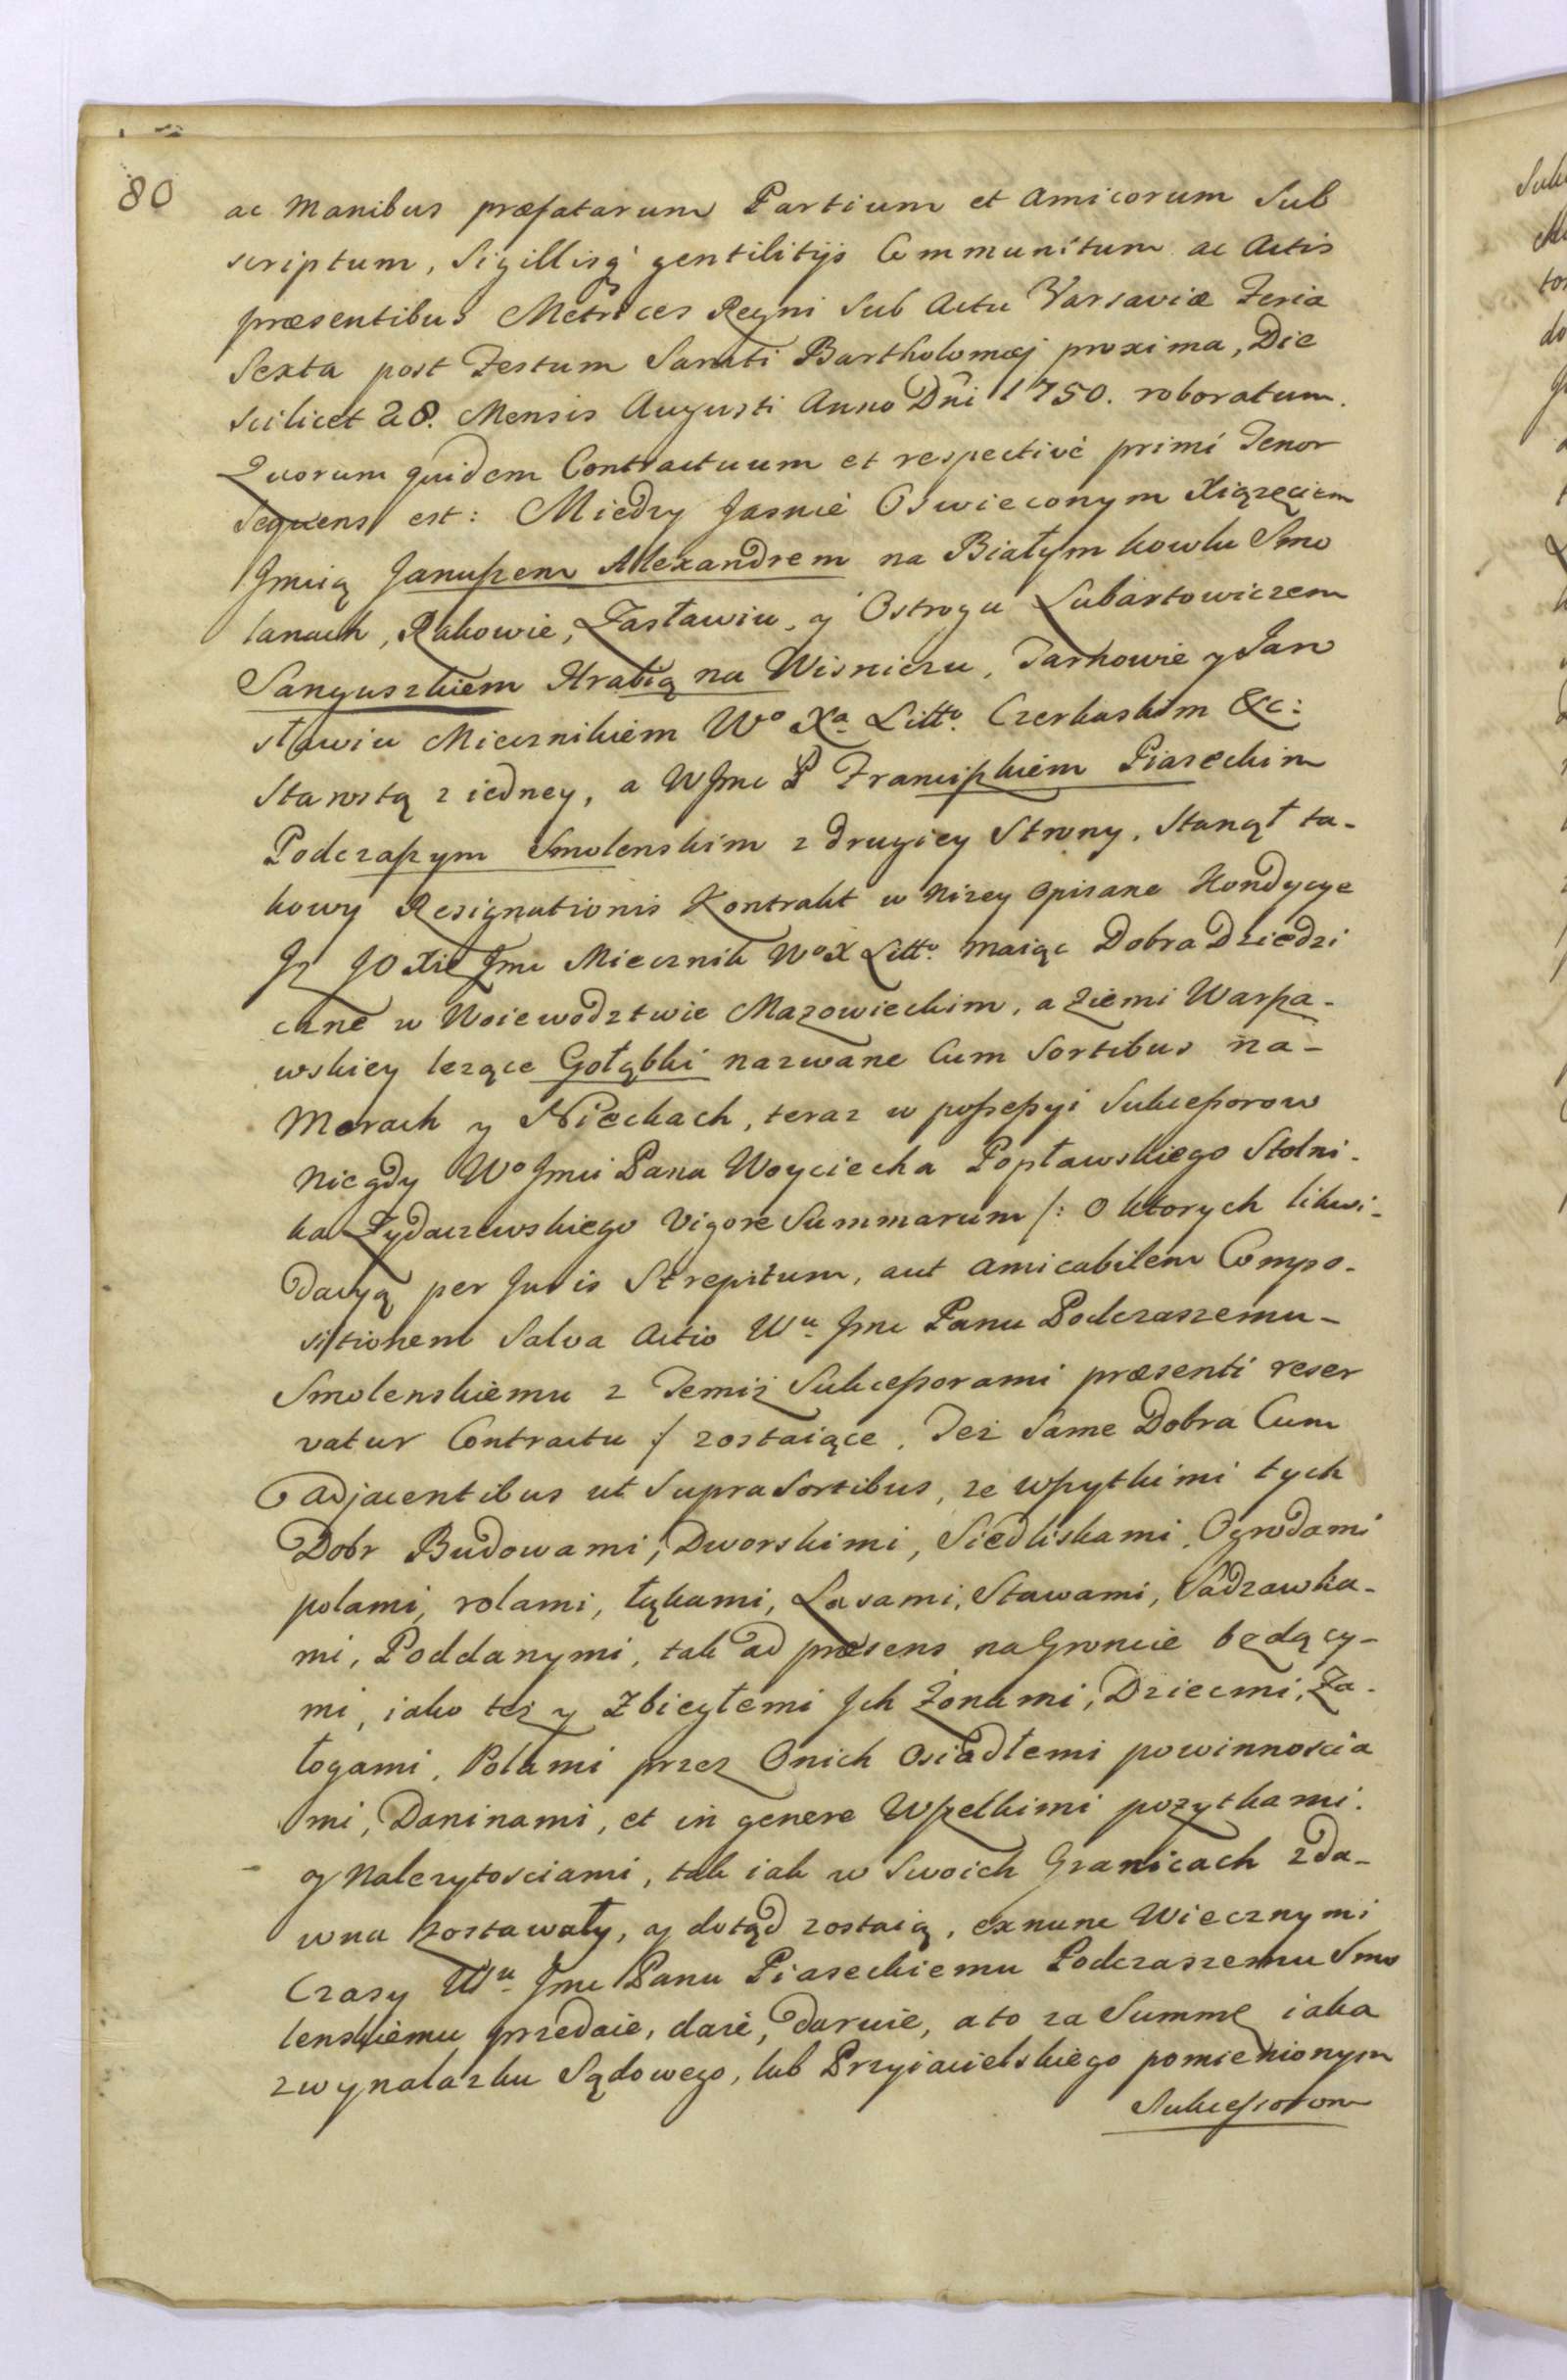 80
ac Manibus præfatarum Partium et Amicorum Sub
scriptum, Sigillisq́ gentilitijs Communitum ac Actis
præsentibus Metrices Regni sub Actu Varsaviæ Feria
Sexta post Festum Sancti Bartholomæj proxima, Die
scilicet 28. Mensis Augusti Anno Dni 1750. roboratum.
Quorum quidem Contractuum et respectivè primi Tenor
Sequens est: Miedzy Jasnie Oswieconym Xiązęciem
Jmcią Januszem Alexandrem na Białym kowlu Smo
lanach, Rakowie, Zasławiu, y Ostrogu Lubartowiczem
Sanguszkiem Hrabią na Wisniczu, Tarnowie y Jaro
sławiu Miecznikiem Wo Xa Litto. Czerkaskim &c:
Starostą z iedney, a WJmc P Franciszkiem Piaseckim
Podczaszym Smolenskim z drugiey Strony, Stanął ta-
kowy Resignationis Kontrakt w nizey opisane Kondycye
Jz JO Xże Jmc Miecznik WoX Litto. maiąc Dobra Dziedzi
czne w Woiewodztwie Mazowieckim, a Ziemi Warsza-
wskiey lezące Gołąbki nazwane Cum Sortibus na-
Morach y Nieckach, teraz w possessyi Sukcessorow
niegdy Wo Jmci Pana Woyciecha Popławskiego Stolni-
ka Zydaczewskiego Vigore Summarum /: o ktorych likwi-
dacyą per Juris Strepitum, aut amicabilem Compo-
sitionem Salva Actio Wu Jmc Panu Podczaszemu-
Smolenskiemu z Temiż Sukcessorami præsenti reser
vatur Contractu :/ zostaiące. Też Same Dobra Cum
Adjacentibus ut Supra Sortibus, ze wszytkimi tych
Dobr Budowami, Dworskimi, Siedliskami, Ogrodami
polami, rolami, łąkami, Lasami, Stawami, Sadzawka-
mi, Poddanymi, tak ad præsens na Groncie będący-
mi, iako tez y Zbiegłemi Jch Żonami, Dziecmi, Za-
łogami, Polami przez Onich osiadłemi powinnoscia
mi, Daninami, et in genere Wszelkimi pozytkami.
y nalezytosciami, tak iak w Swoich Granicach zda-
wna zostawały, y dotąd zostaią, exnunc Wiecznymi
Czasy Wu Jmc Panu Piaseckiemu Podczaszemu Smo
lenskiemu przedaie, daie, daruie, a to za Summę iaka
z wynalazku Sądowego, lub Przyiacielskiego pomienionym
Sukcessorom